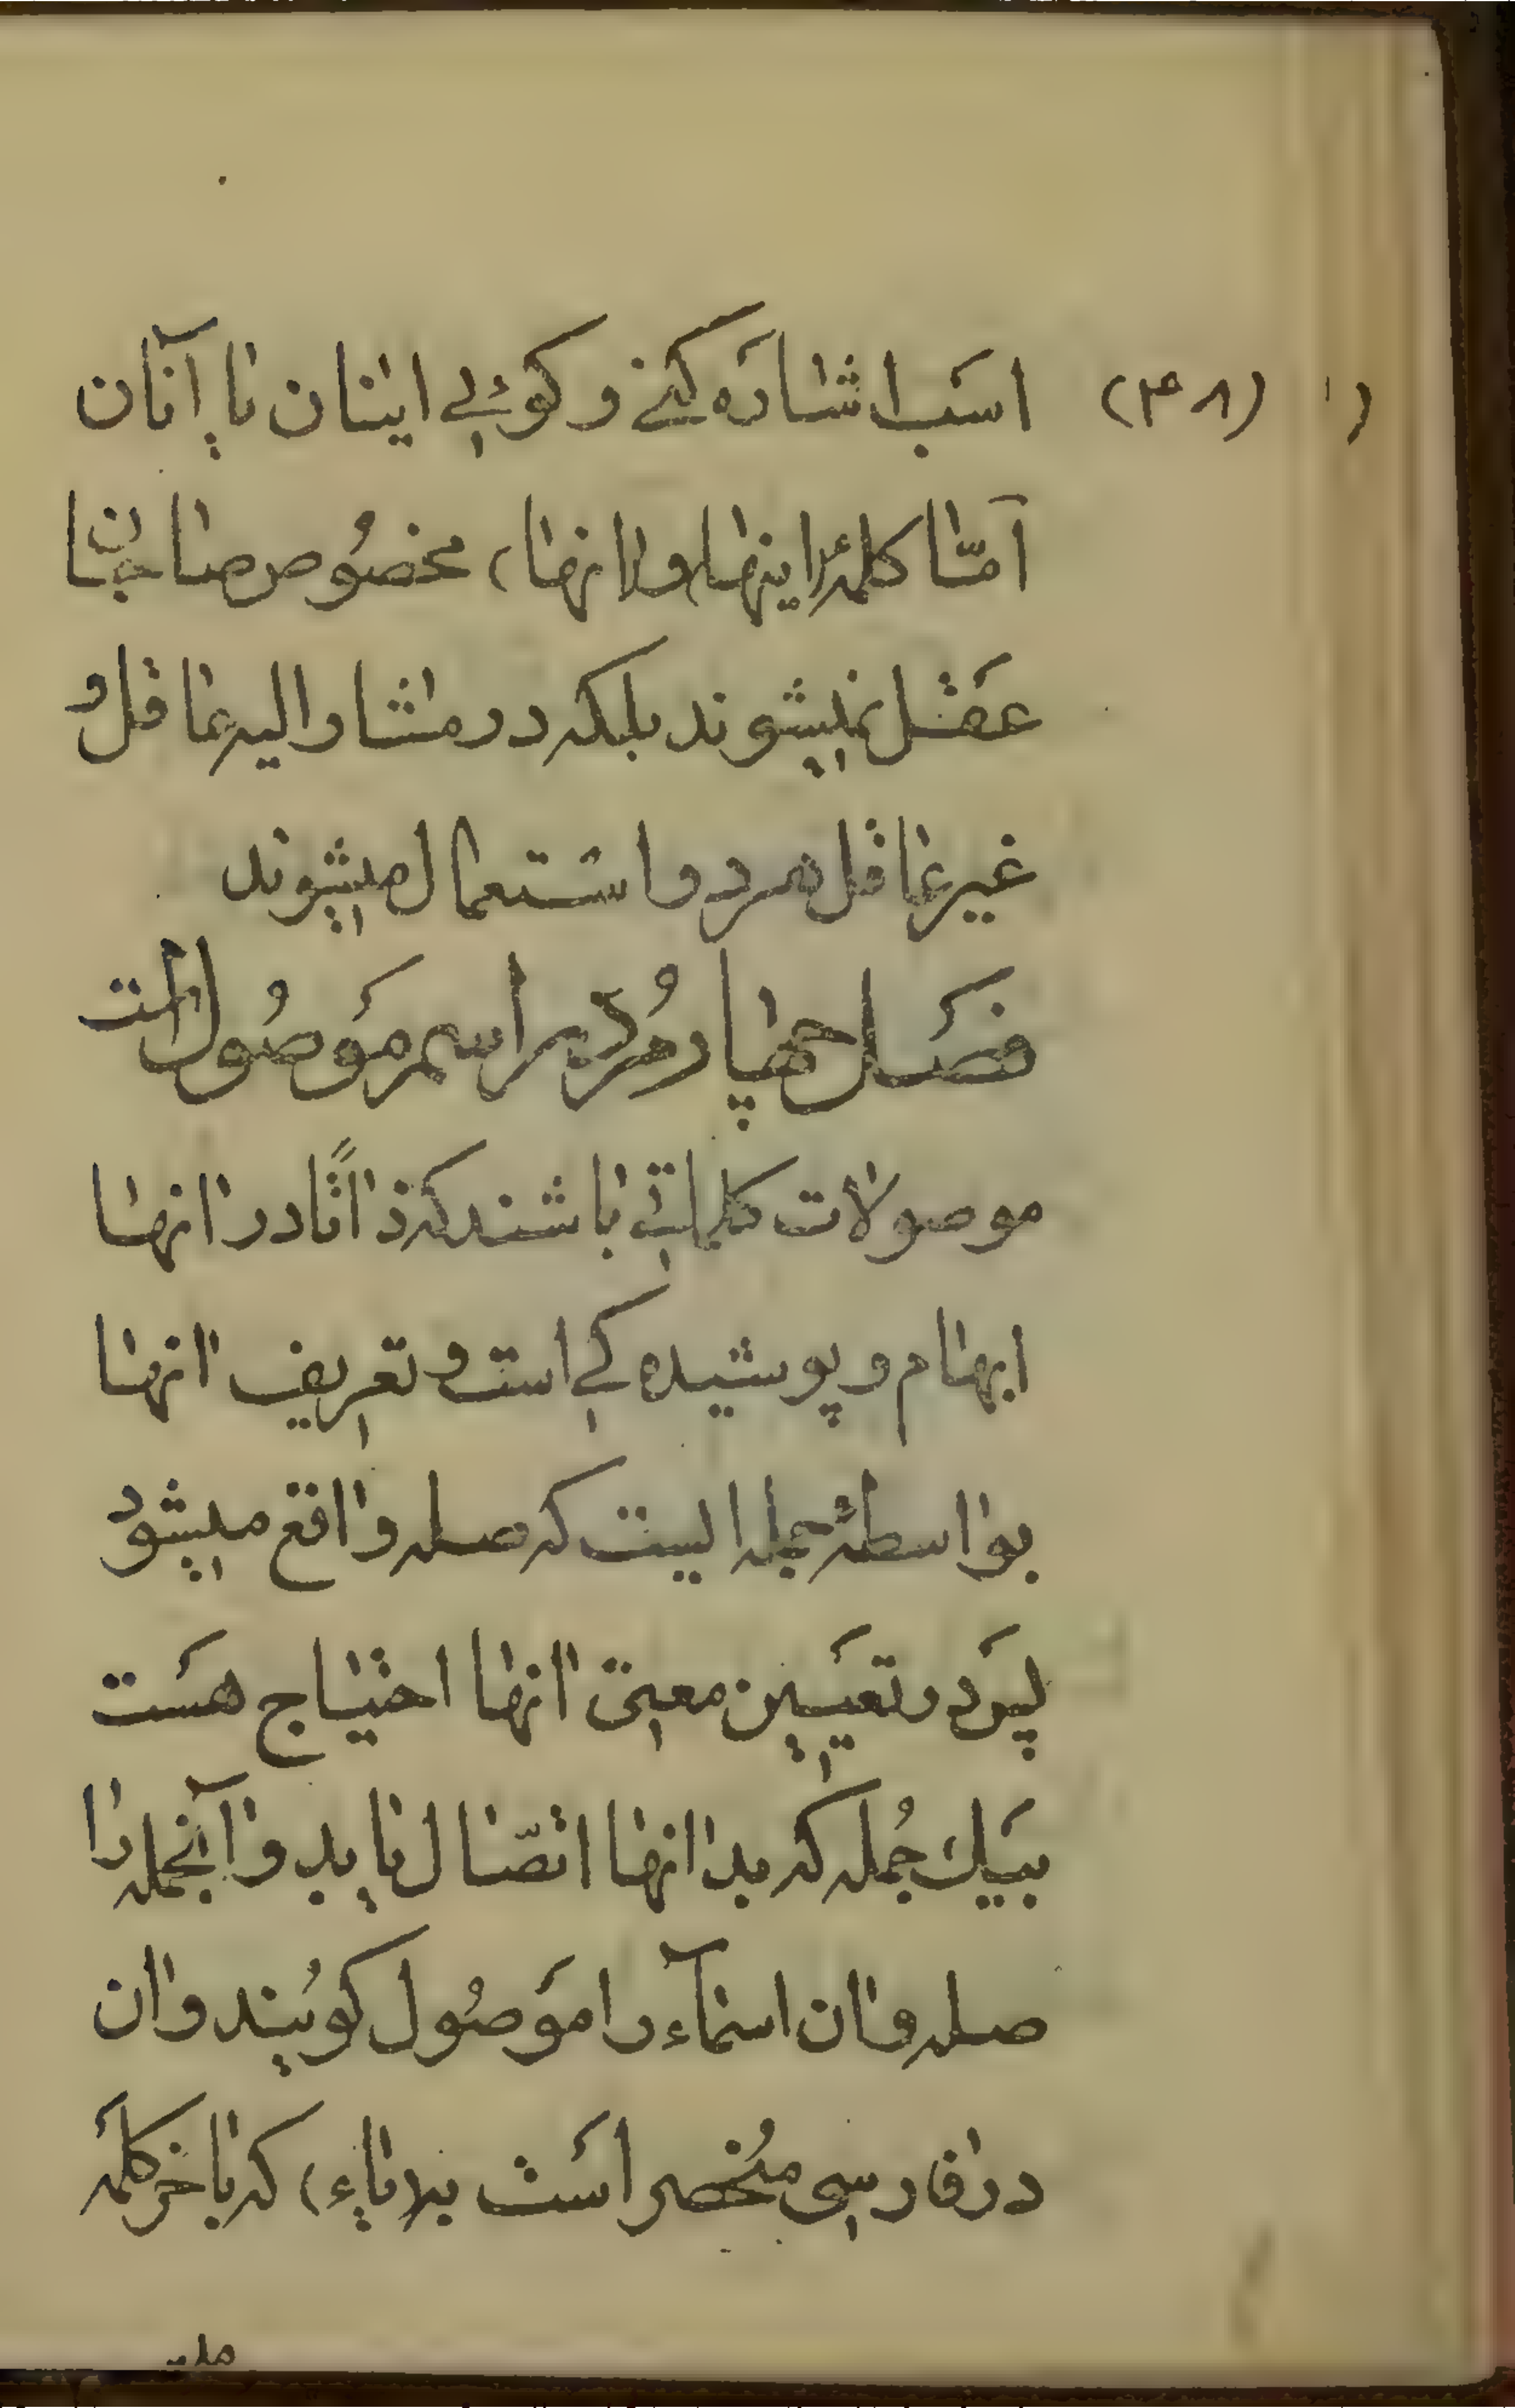 (۴۸) اسب اشاره کنی و کوئی اینان یا آنان
امّا کلمهٔ (اینها) و (انها) مخصوص صاحبان
عقل نمیشوند بلکه در مشار الیه عاقل و
غیر عاقل هردو استعمال میشوند
فصل چهارم در اسم موصُول است
موصولات کلماتی باشند که ذاتًا در انها
ابهام و پوشیده کی است و تعریف انها
بواسطهٔ جمله ایست که صله واقع میشود
پس در تعیین معنی انها احتیاج هست
بیک جُمله که بدانها اتصّال یابد و آنجمله را
صله و ان اسمآء را موصُول کویند و ان
در فارسی مُنحصر است به (یاء) که باخر کلمه